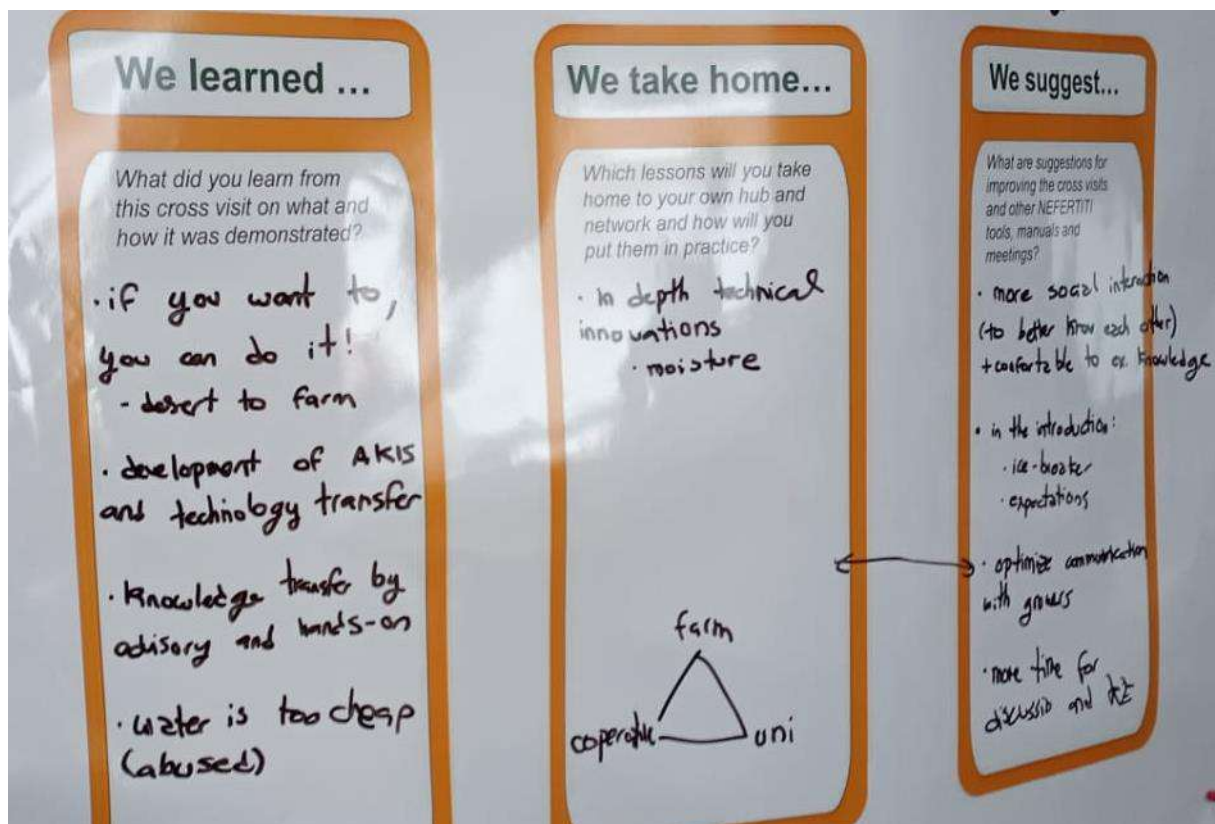 We learned ...
What did you learn from
this cross visit on what and
how it was demonstrated?
· if you want to,
you can do it!
- desert to farm
· development of AKIS
and technology transfer
· Knowledge transfer by
adisory and hands-on
· water is too cheap
(abused)
We take home...
Which lessons will you take
home to your own hub and
network and how will you
put them in practice?
· In depth technical
innovations
· moisture
farm
coperative
uni
We suggest...
What are suggestions for
improving the cross visits
and other NEFERTITI
tools, manuals and
meetings?
· more social interaction
(to better know each other)
+ confortable to ex. knowledge
· in the introduction:
· ice-breaker
· expectations
· optimize communication
with growers
· more time for
discussio and KE